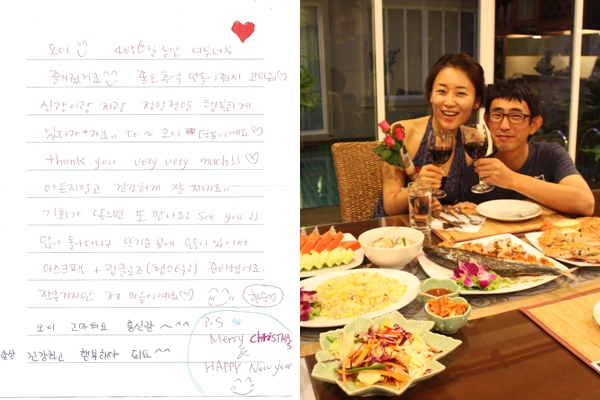 오이 4박6일 동안 너무너무
즐거웠어요 좋은 추억 만들어줘서 고마워
신랑이랑 저랑 정말정말 행복하게
있다가 가요 다 ~ 오이 덕분이에요
thank you very very much!!
아픈지말고 건강하게 잘 지내요
기회가 닿으면 또 만나요! See you!!
많이 돌아다니구 뜨거운 곳에 있어서
마스크팩 + 립글로즈(챕스틱) 준비했어요.
작은거지만 제 마음이예요
오이 고마워요 홍신랑 ~ ^^
항상 건강하고 행복하다 되요 ^^
P.S
Merry christmas
&
HAPPY New year